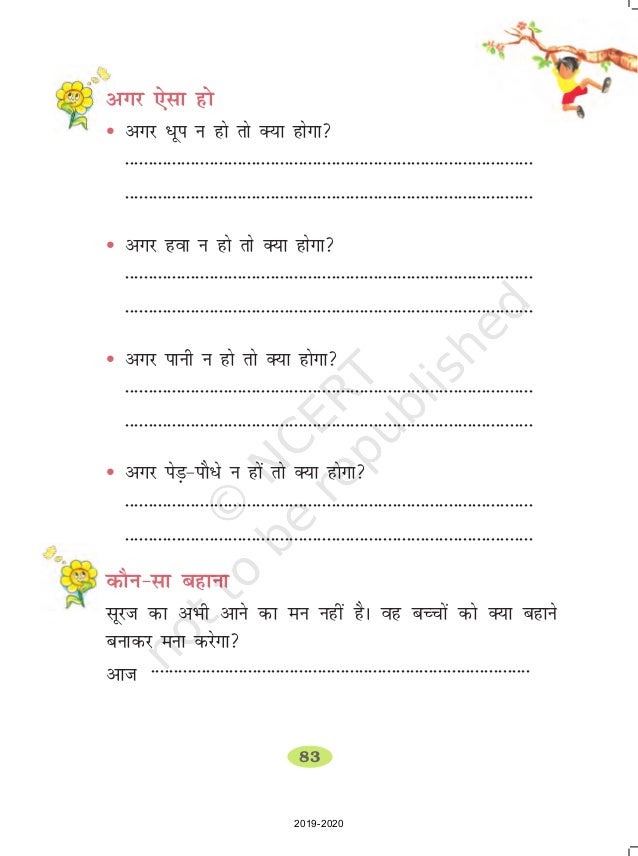 अगर ऐसा हो
• अगर धूप न हो तो क्या होगा?
• अगर हवा न हो तो क्या होगा?
• अगर पानी न हो तो क्या होगा?
• अगर पेड़-पौधे न हों तो क्या होगा?
कौन-सा बहाना
सूरज का अभी आने का मन नहीं है। वह बच्चों को क्या बहाने
बनाकर मना करेगा?
आज
© NCERT
not to be republished
83
2019-2020